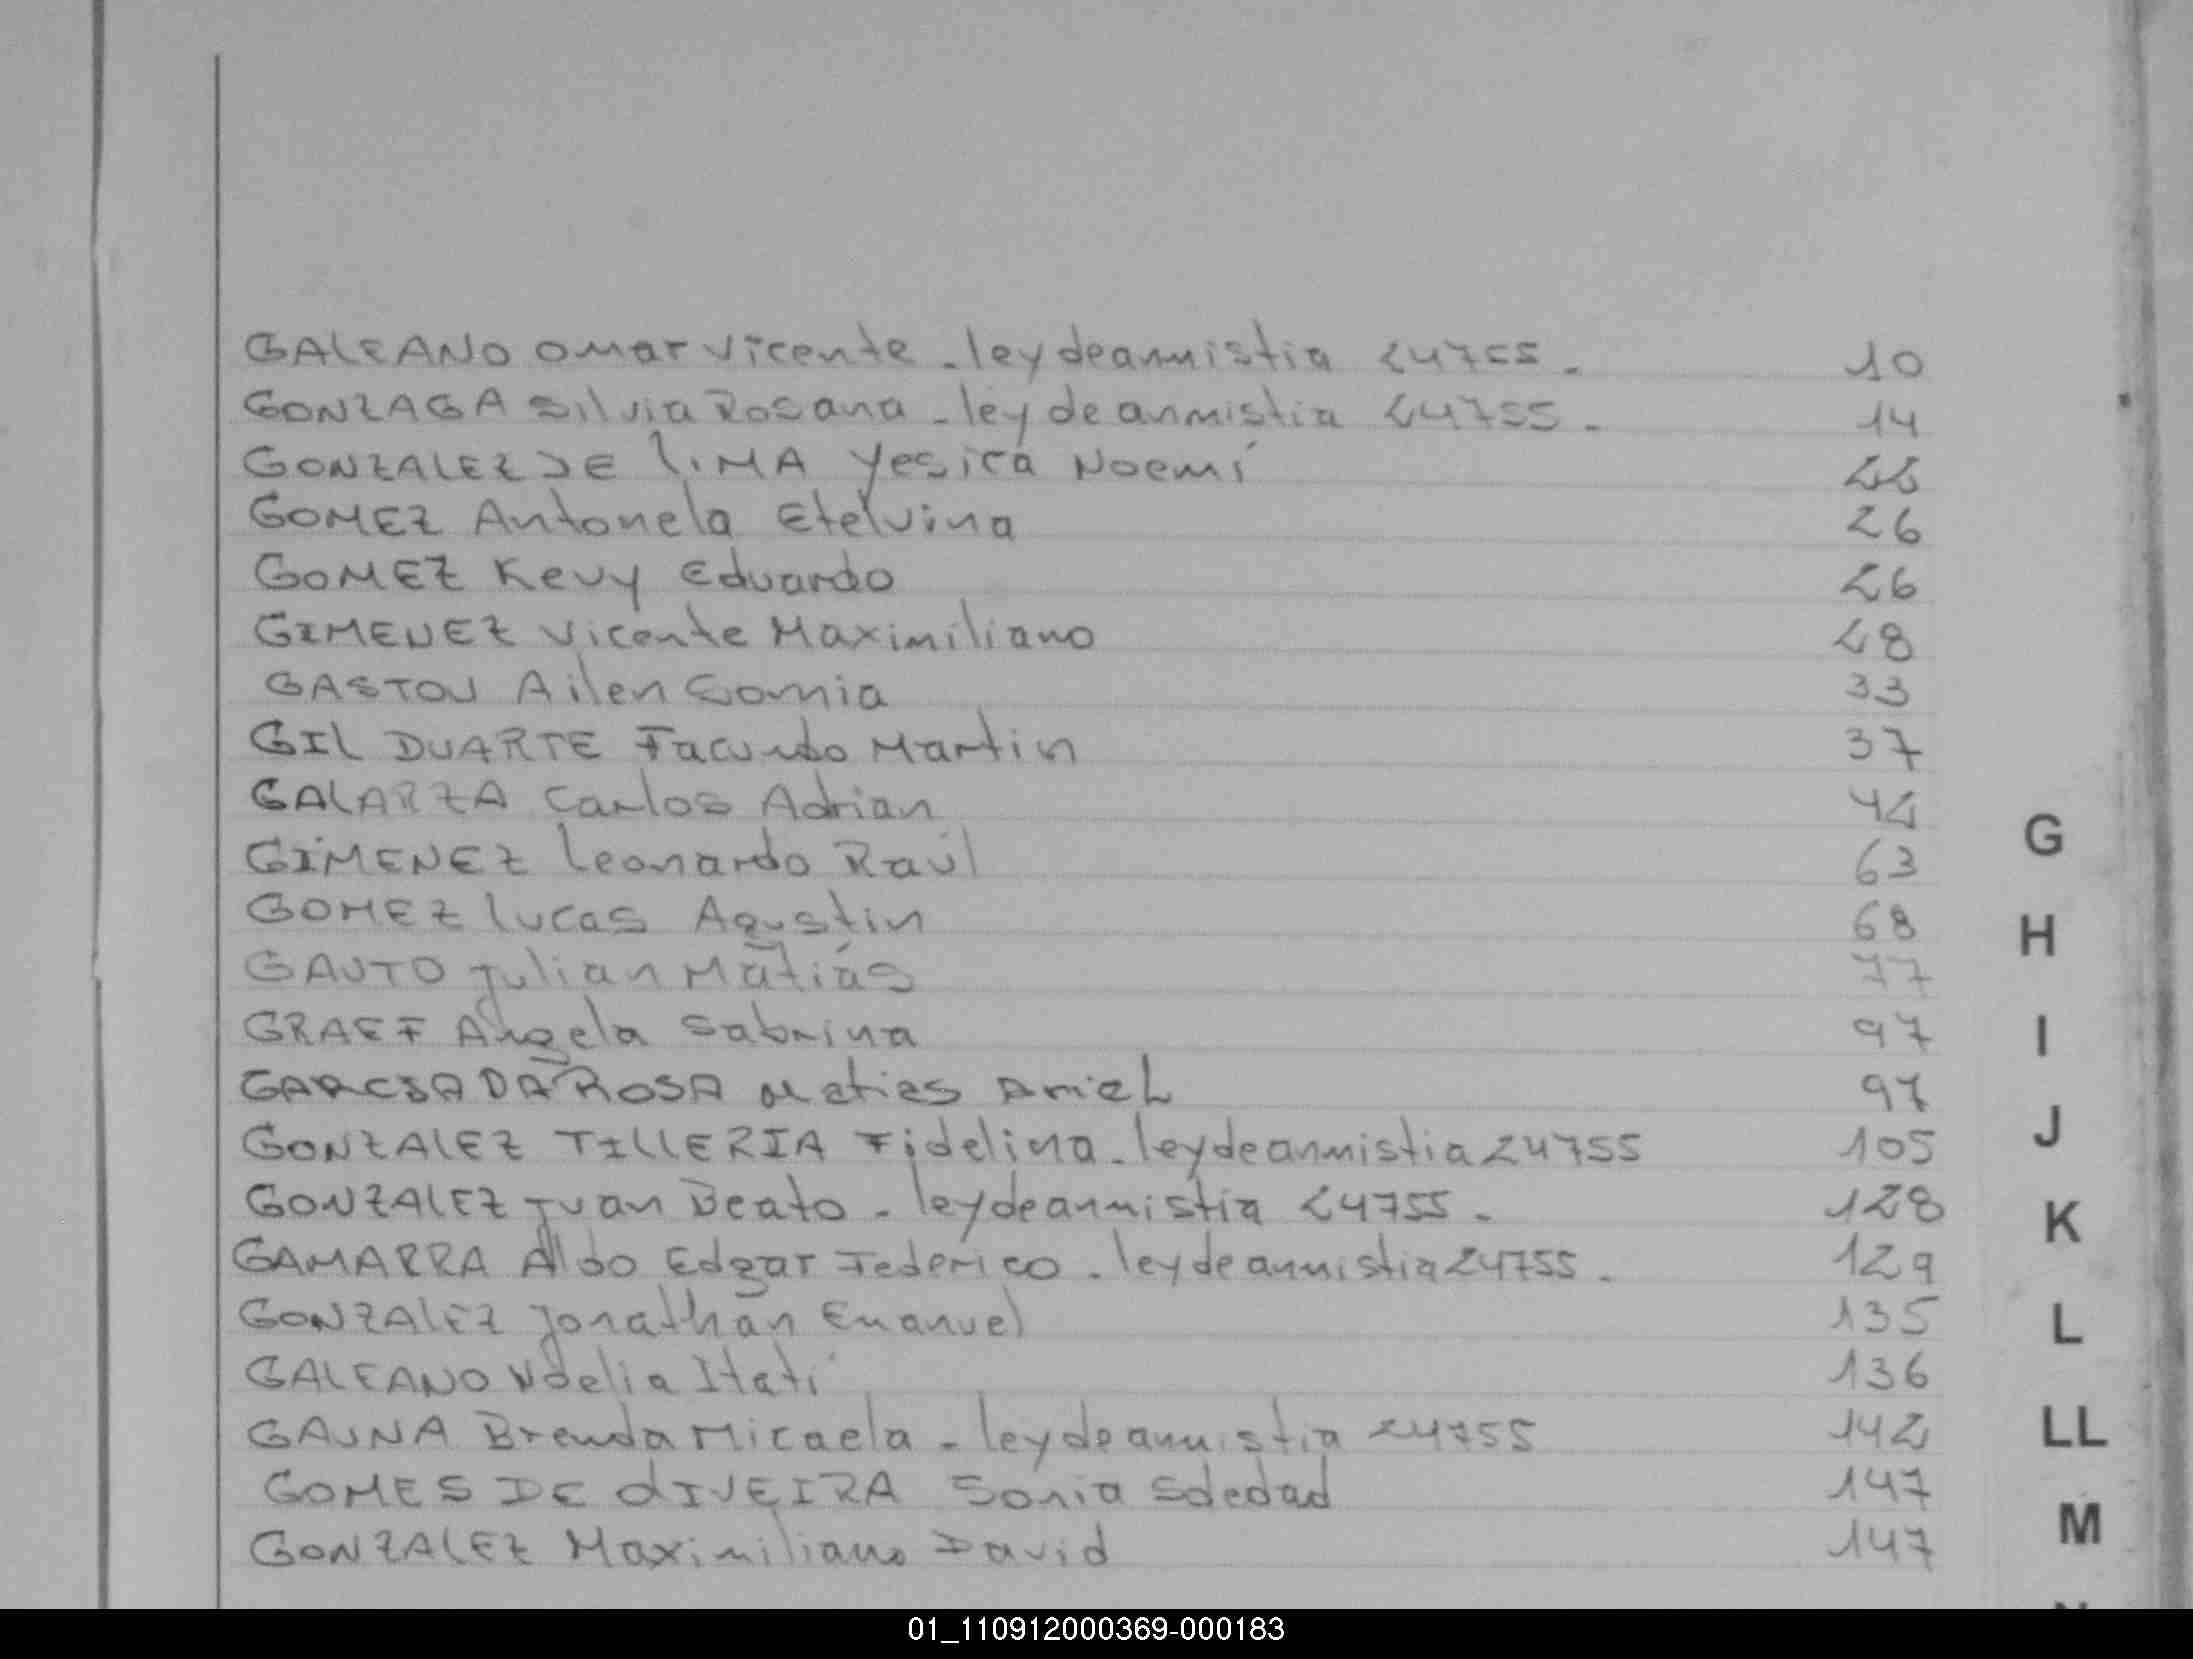 GALEANO Omar Vicente - ley de anmistia 24755 - 10
GONZAGA Silvia Rosana - ley de anmistia 24755 - 14
GONZALEZ DE LIMA Yesica Noemí 22
GOMEZ Antonela Etelvina 26
GOMEZ Kevy Eduardo 26
GIMENEZ Vicente Maximiliano 28
GASTON Ailen Sonnia 33
GIL DUARTE Facundo Martin 37
GALARZA Carlos Adrian 42
GIMENEZ Leonardo Raúl 63
GOMEZ Lucas Agustin 68
GAUTO Julian Matiás 77
GRAEF Angela Sabrina 97
GARCIA DA ROSA Matias Ariel 97
GONZALEZ TILLERIA Fidelina - ley de anmistia 24755 105
GONZALEZ Juan Beato - ley de anmistia 24755 - 128
GAMARRA Aldo Edgar Federico - ley de anmistia 24755 - 129
GONZALEZ Jonathan Emanuel 135
GALEANO Noelia Itatí 136
GAUNA Brenda Micaela - ley de anmistia 24755 142
GOMES DE OLIVEIRA Sonia Soledad 147
GONZALEZ Maximiliano David 147
G
H
I
J
K
L
LL
M
01_110912000369-000183